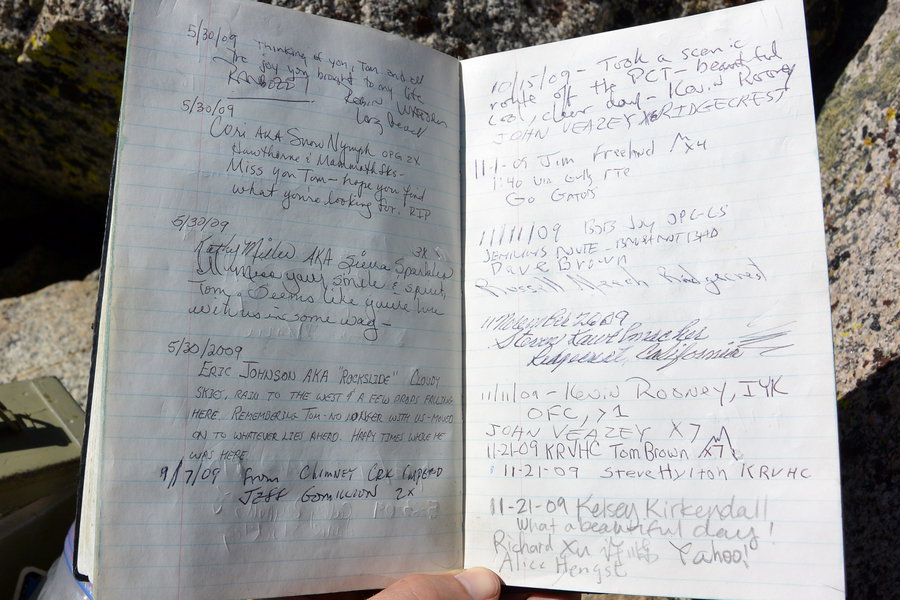 5/30/09 Thinking of you, Tom and all
the joy you brought to my life
Robin
5/30/09
Cori AKA Snow Nymph OPG 2X
Hawthorne & Mammoth Lks -
Miss you Tom - hope you find
what you're looking for. RIP
5/30/09
Kathy Miller AKA Sierra Sparkles 3X
I'll miss your smile & spirit,
Tom. Seems like you're here
with us in some way -
5/30/2009
ERIC JOHNSON AKA "ROCKSLIDE" CLOUDY
SKIES, RAIN TO THE WEST & A FEW DROPS FALLING
HERE. REMEMBERING TOM - NO LONGER WITH US - MOVED
ON TO WHATEVER LIES AHEAD. HAPPY TIMES WHILE HE
WAS HERE.
9/7/09 from CHIMNEY CRK CMPGRD
JEFF GOMILLION 2X
10/15/09 - Took a scenic
route off the PCT - beautiful
cool, clear day - Kevin Rooney
JOHN VEAZEY X6 RIDGECREST
11-1-09 Jim Freeland X4
1:40 via Gully RTE
Go Gators
11/11/09 BOB Joy OPG-CS
ROUTE - NOT BAD
Dave Brown
Russell Ridgecrest
November 09
Steven
Ridgecrest California
11/11/09 - Kevin Rooney, IYK
OFC, >1
JOHN VEAZEY X7
11-21-09 KRVHC Tom Brown X7
11-21-09 Steve Hylton KRVHC
11-21-09 Kelsey Kirkendall
What a beautiful day!
Richard Xu Yahoo!
Alice Hengst